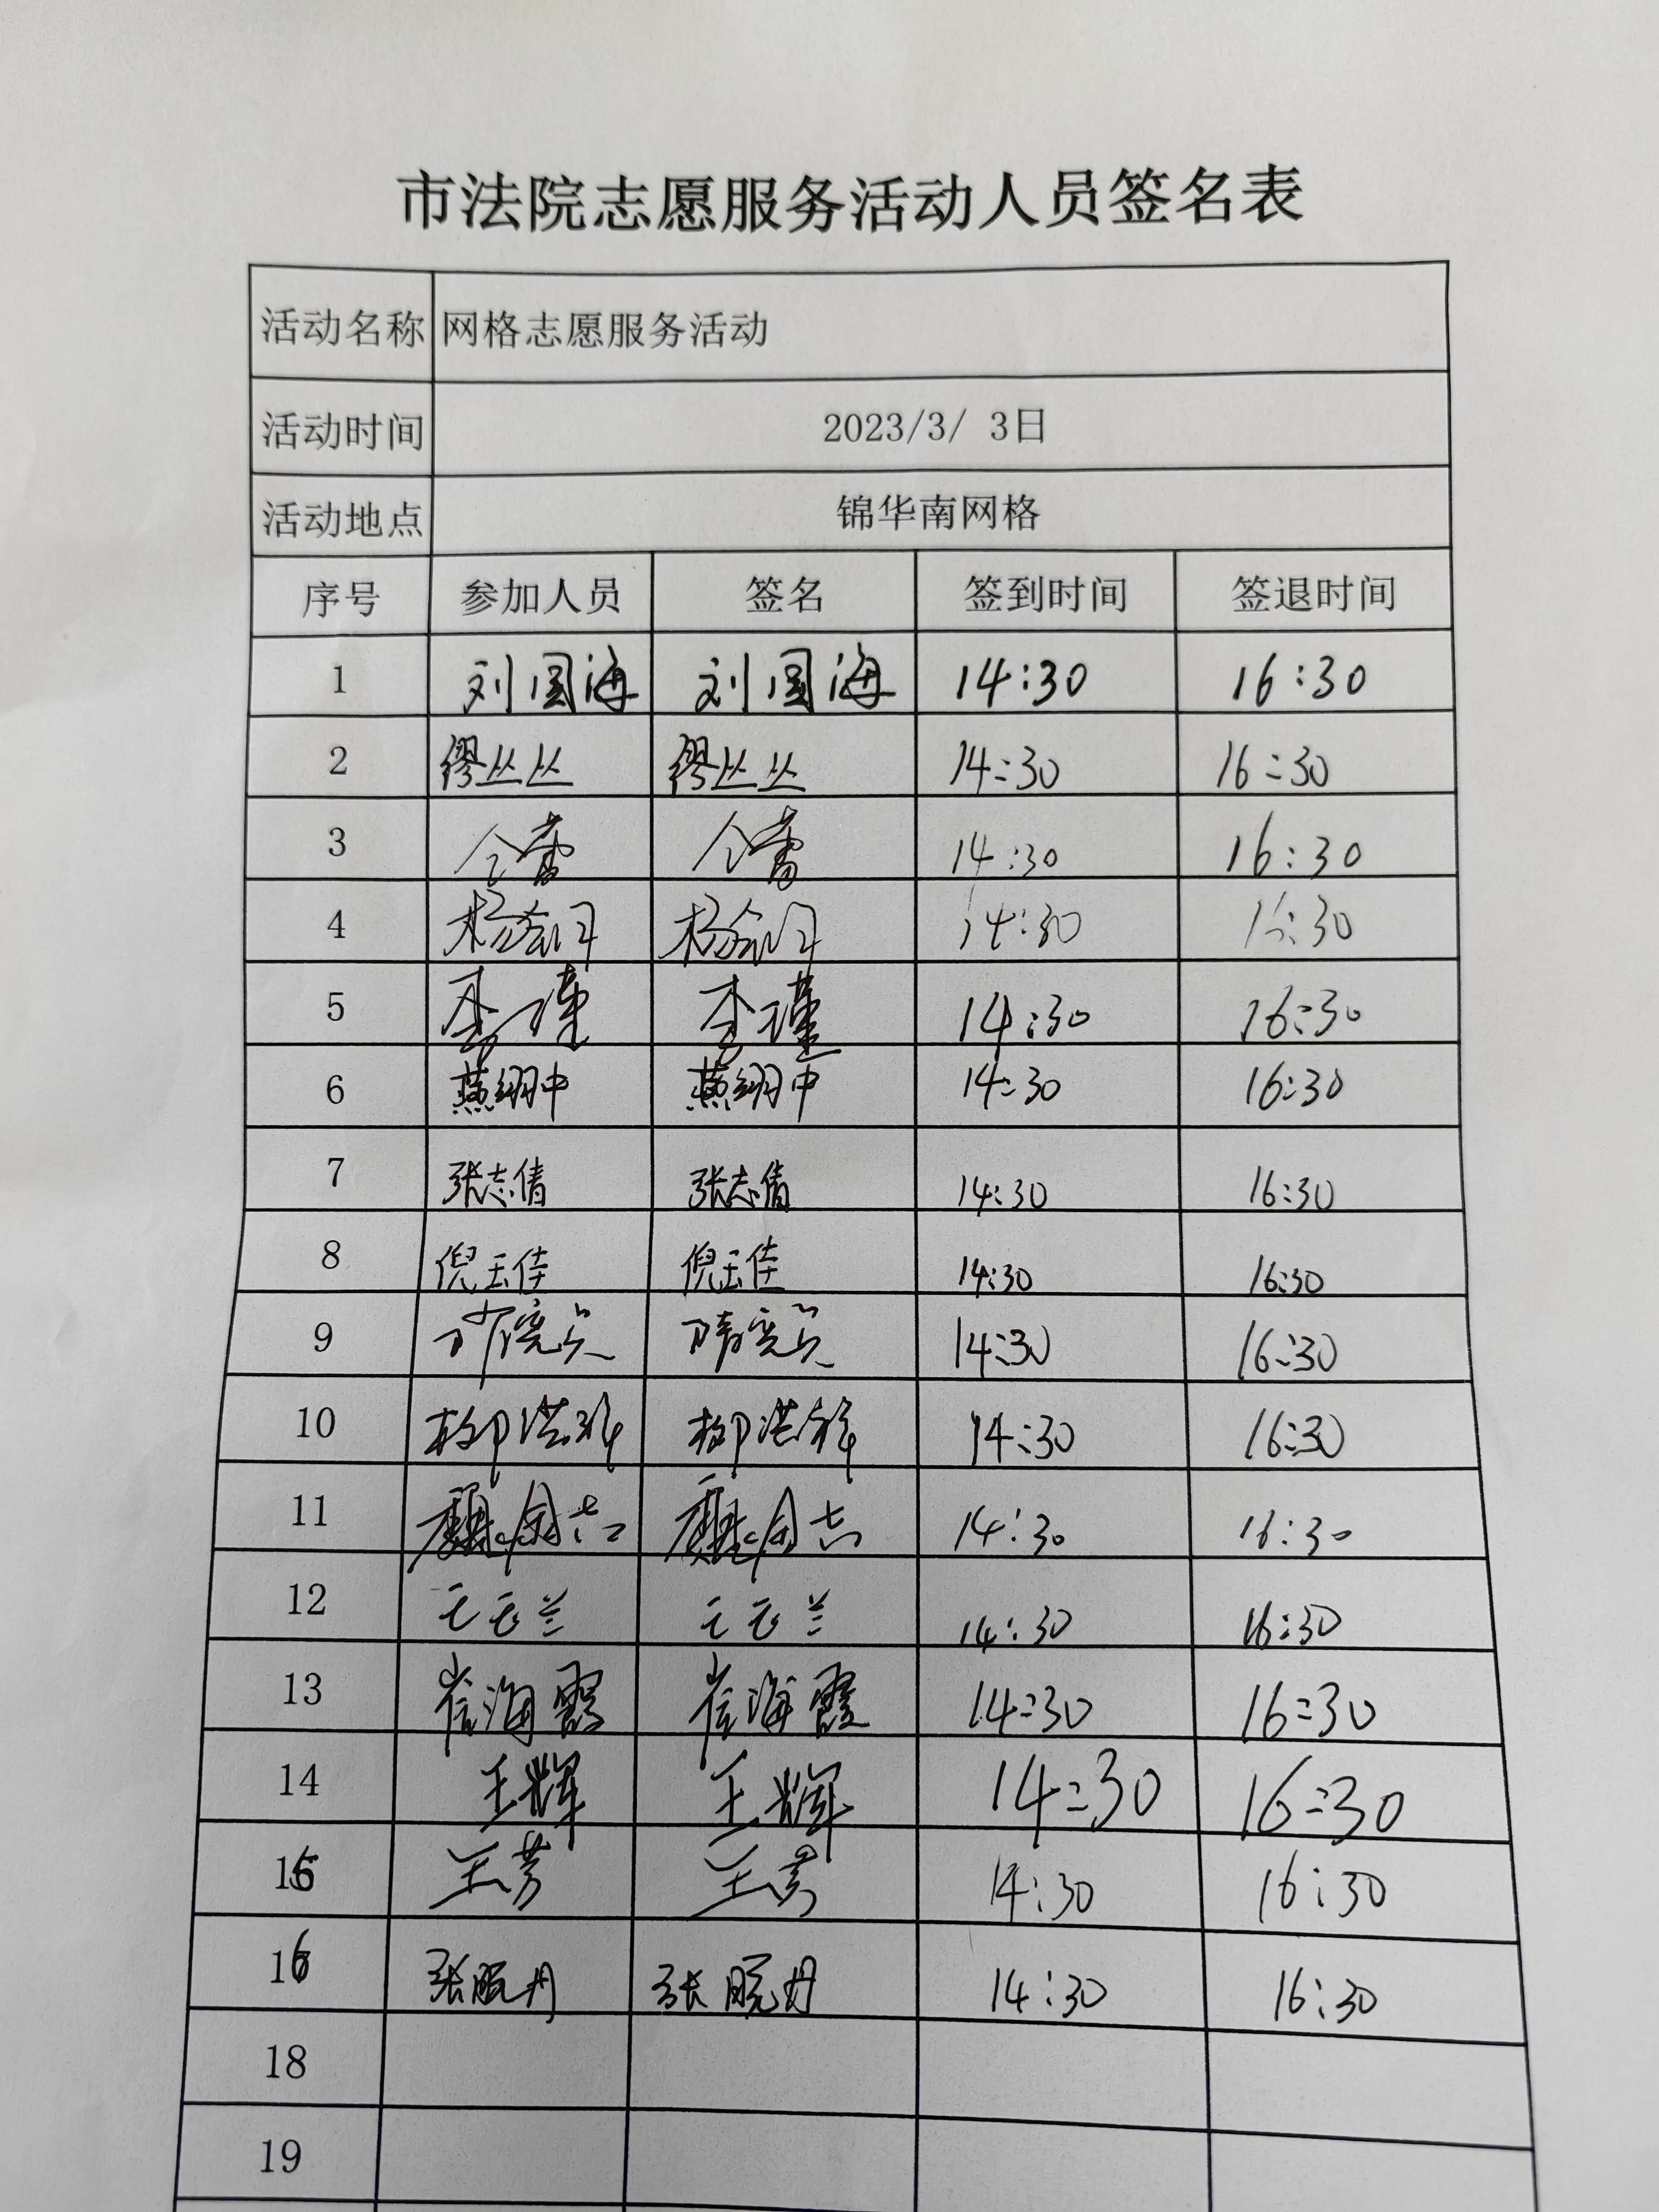 市法院志愿服务活动人员签名表
活动名称 网格志愿服务活动
活动时间 2023/3/ 3日
活动地点 锦华南网格
序号 参加人员 签名 签到时间 签退时间
1 刘国海 刘国海 14:30 16:30
2 缪丛丛 缪丛丛 14:30 16:30
3 仝蕾 仝蕾 14:30 16:30
4 14:30 16:30
5 李瑾 李瑾 14:30 16:30
6 燕翊中 燕翊中 14:30 16:30
7 张志倩 张志倩 14:30 16:30
8 倪玉佳 倪玉佳 14:30 16:30
9 14:30 16:30
10 14:30 16:30
11 14:30 16:30
12 14:30 16:30
13 崔海霞 崔海霞 14:30 16:30
14 王辉 王辉 14:30 16:30
15 王芳 王芳 14:30 16:30
16 张晓丹 张晓丹 14:30 16:30
18
19